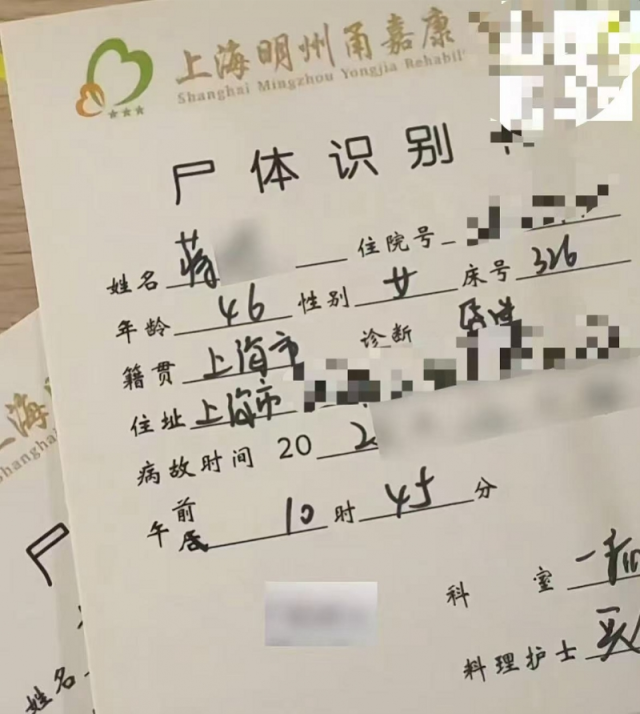 上海明州甬嘉康
Shanghai Mingzhou Yongjia Rehabil
尸体识别
姓名 蒋 住院号
年龄 46 性别 女 床号 326
籍贯 上海市 诊断
住址 上海市
病故时间 20 2
午 前 10 时 45 分
后
科 室 一
料理护士
上海
Shanghai
尸
姓名